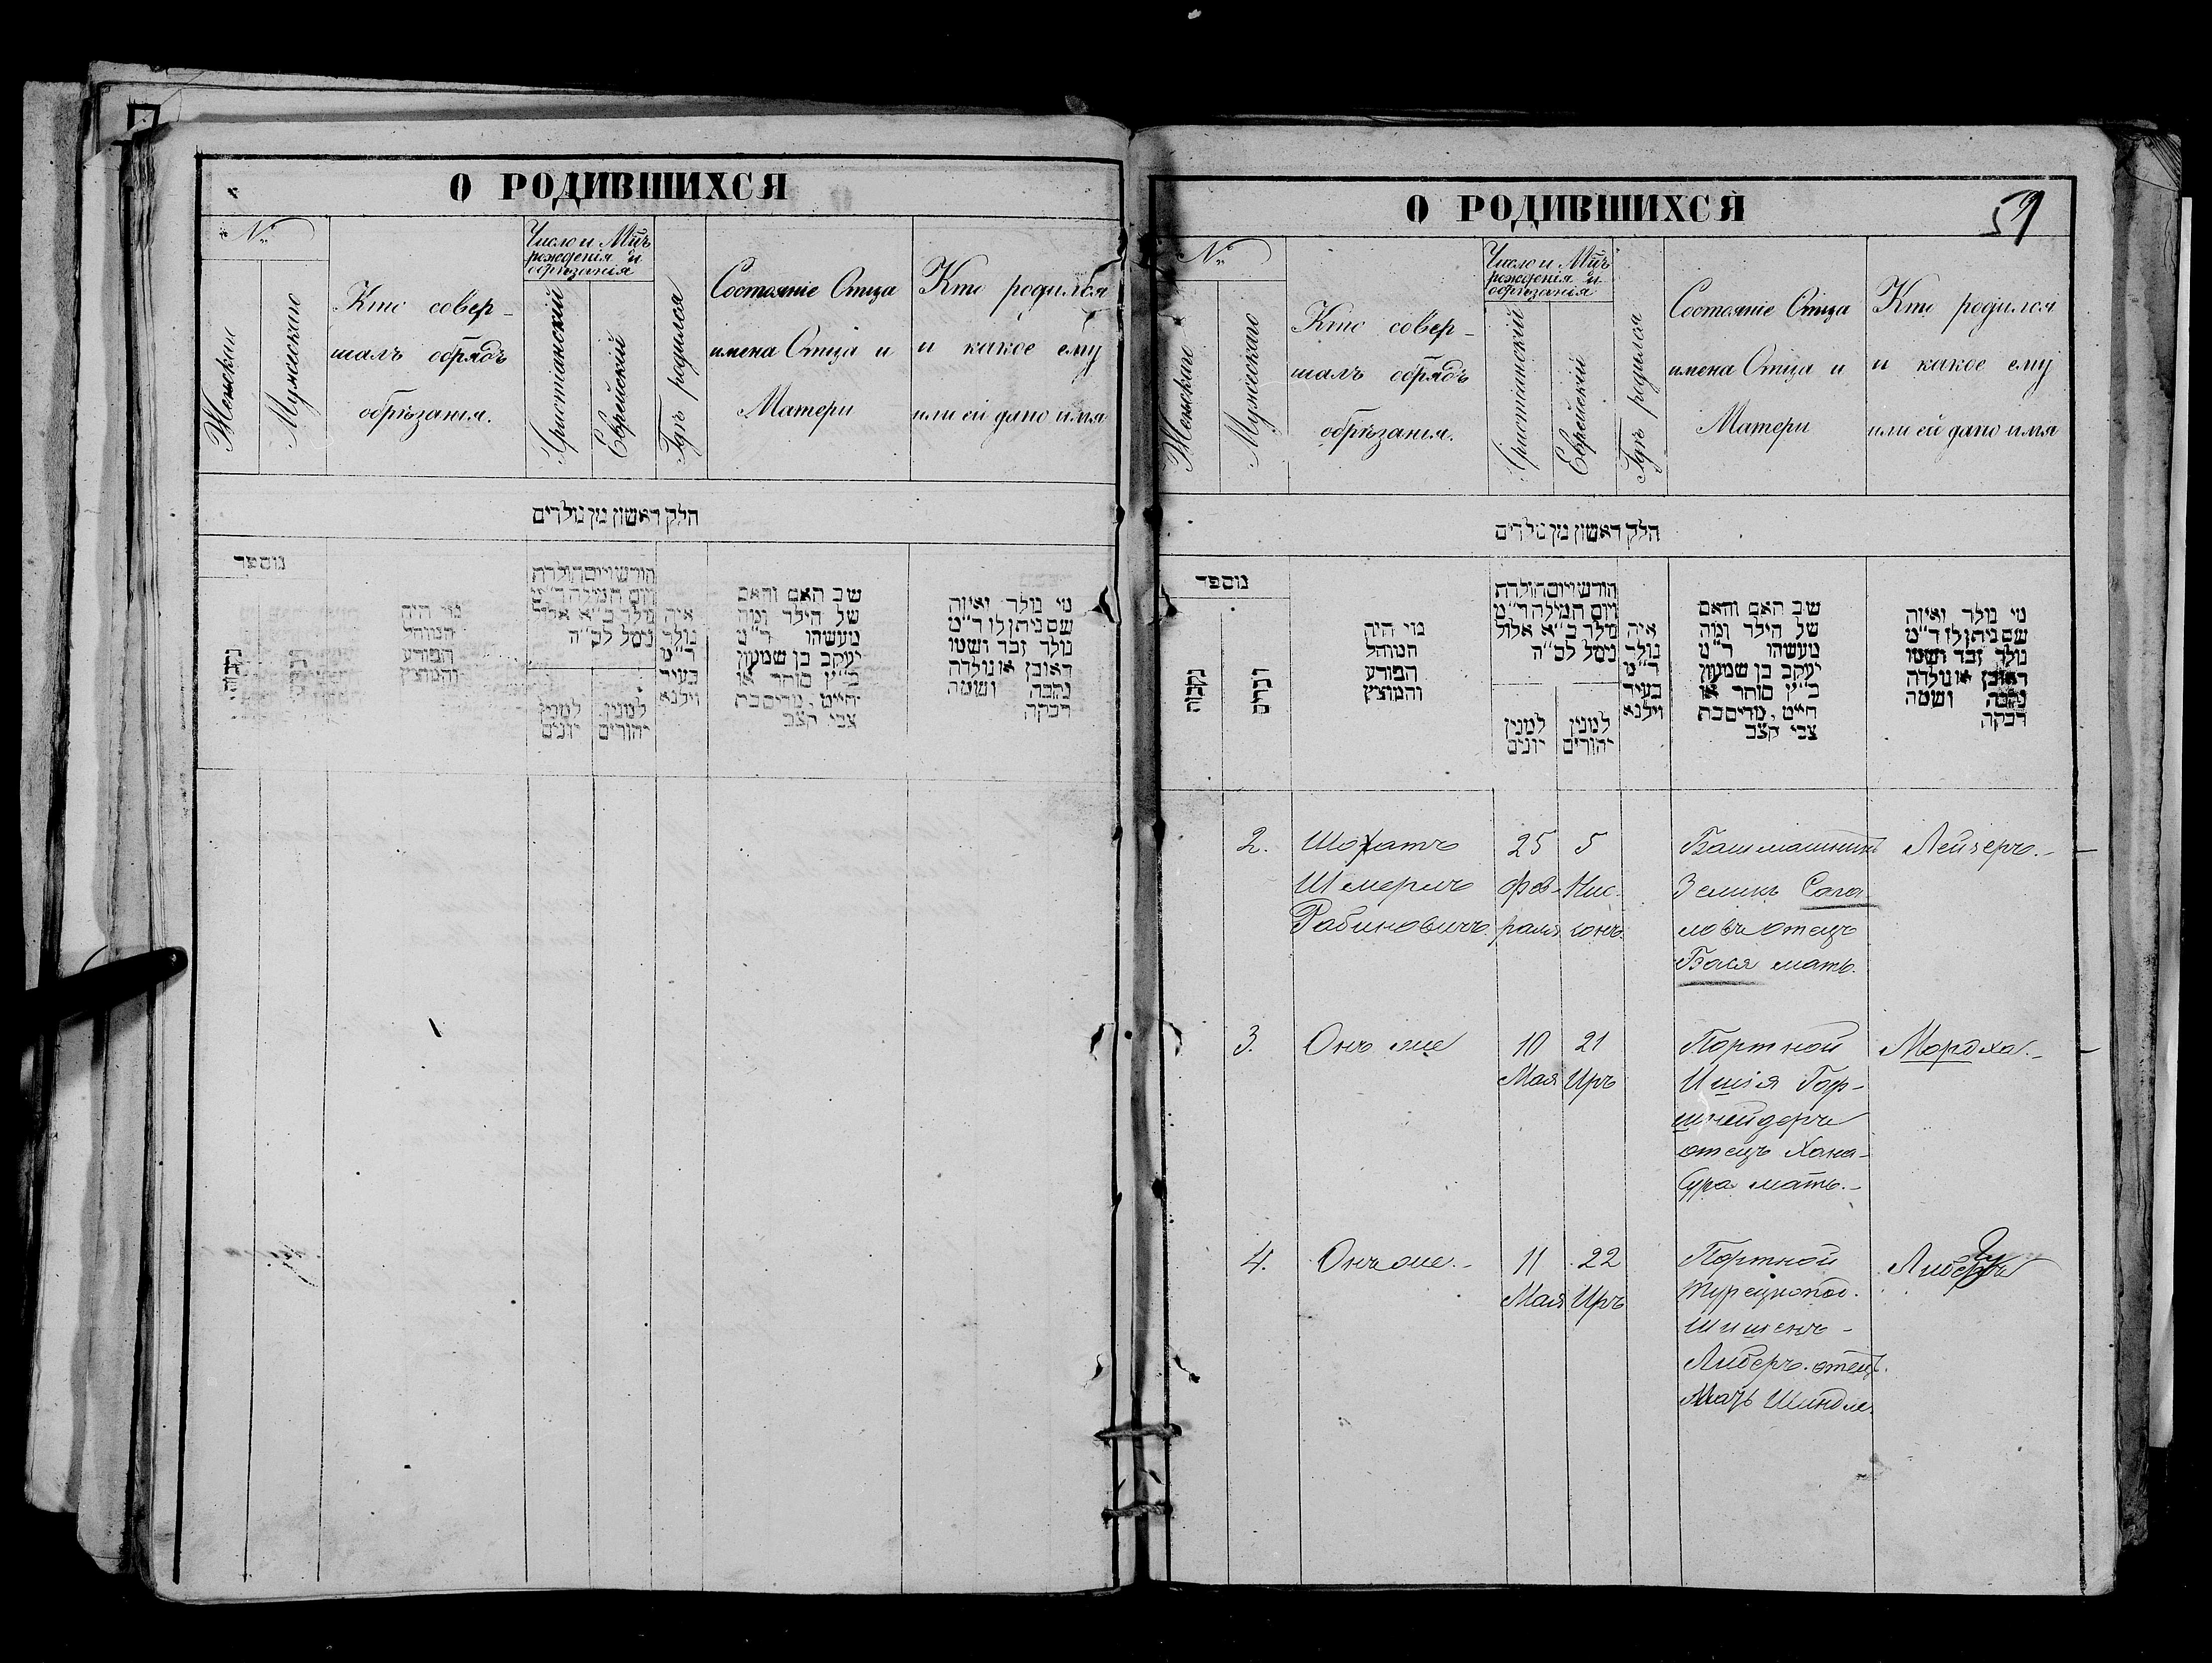 О РОДИВШИХСЯ
№
Женскаго
Мужескаго
Кто совер-
шалъ обрядъ
обрѣзанія.
Число и Мѣц
рожденія и
обрѣзанія
Христіанскій
Еврейскій
Гдѣ родился
Состояніе Отца
имена Отца и
Матери
Кто родился
и какое ему
или ей дано имя
חלק ראשון מן נולדים
מוספר
נקבות
מי היה
המוהל
הפורע
והמוצץ
חורש ויום הולדת
ויום המילה ד״מ
נולד ב״א אלול
ניסל לס״ה
למנין
יונים
למנין
יהודים
איה
נולד
ד״מ
בעיר
וילנא
שב האם והאם
של הילד ומה
מעשהו ד״מ
יעקב בן שמעון
כ״ץ סוחר או
חייט, מריס בת
צבי קצב
מי נולד ואיזה
שם ניתן לו ד״מ
נולד זכר ושמו
ראובן או נולדה
נקבה ושמה
רבקה
О РОДИВШИХСЯ
59
№
Женскаго
Мужескаго
Кто совер-
шалъ обрядъ
обрѣзанія.
Число и Мѣц
рожденія и
обрѣзанія
Христіанскій
Еврейскій
Гдѣ родился
Состояніе Отца
имена Отца и
Матери
Кто родился
и какое ему
или ей дано имя
חלק ראשון מן נולדים
מוספר
נקבות
זכרים
מי היה
המוהל
הפורע
והמוצץ
חורש ויום הולדת
ויום המילה ד״מ
נולד ב״א אלול
ניסל לס״ה
למנין
יונים
למנין
יהודים
איה
נולד
ד״מ
בעיר
וילנא
שב האם והאם
של הילד ומה
מעשהו ד״מ
יעקב בן שמעון
כ״ץ סוחר או
חייט, מריס בת
צבי קצב
מי נולד ואיזה
שם ניתן לו ד״מ
נולד זכר ושמו
ראובן או נולדה
נקבה ושמה
רבקה
2.
Шохатъ
Шмерилъ
Рабиновичъ.
25
фев-
раля
5
Нис-
сонъ
Башмашникъ
Зеликъ Сага
ловъ отецъ
Бася мать.
Лейзеръ.-
3.
Онъ же
10
Мая
21
Иръ
Портной
Ишія Гор-
шнейдеръ
отецъ Хана-
Сура мать.-
Мордха.-
4.
Онъ же.-
11
Мая
22
Иръ
Портной
Шишенъ-
Либеръ. отецъ.
Мать Шиндле.